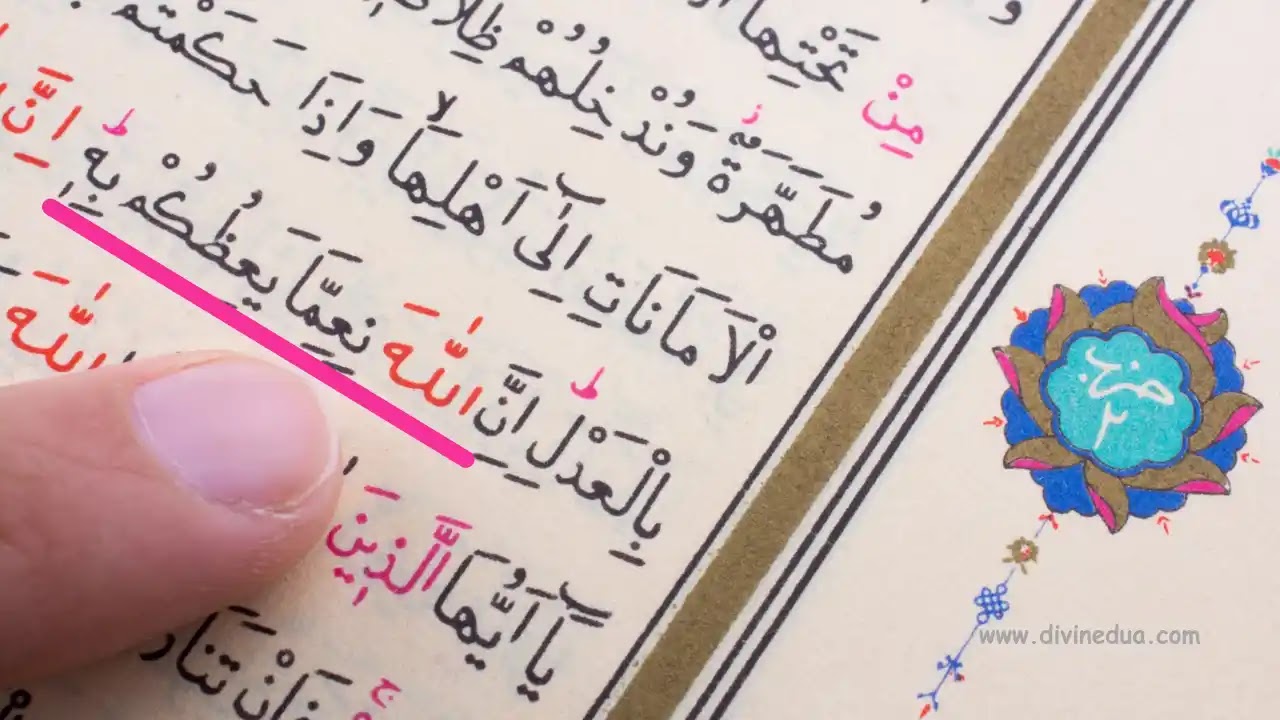 مِنْ تَحْتِهَا
مُطَهَّرَةٌ وَنُدْخِلُهُمْ ظِلًّا
الْاَمَانَاتِ اِلٰٓى اَهْلِهَاۙ وَاِذَا حَكَمْتُمْ
بِالْعَدْلِۜ اِنَّ اللّٰهَ نِعِمَّا يَعِظُكُمْ بِه۪ۜ اِنَّ
يَٓا اَيُّهَا الَّذ۪ينَ اللّٰهَ
حزب
www.divinedua.com